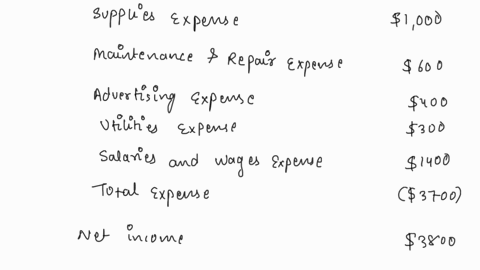 Supplies Expense $1,000
Maintenance & Repair Expense $600
Advertising Expense $400
Utilities Expense $300
Salaries and wages Expense $1400
Total Expense ($3700)
Net income $3800